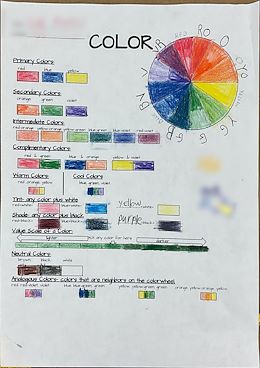 COLOR
RO
O
YO
Y
YG
G
BG
B
BV
V
VR
Primary Colors:
red blue yellow
Secondary Colors:
orange green violet
Intermediate Colors:
red orange yellow orange yellow green blue green blue violet red violet
Complimentary Colors:
red & green blue & orange
Warm Colors: Cool Colors:
red orange yellow blue green violet
Tint- any color plus white
red+white= blue+white= yellow +white=
Shade- any color plus black
red+black= blue+black= purple +black=
Value Scale of a Color:
lighter pick any color for here darker
Neutral Colors:
brown black white
Analogous Colors- colors that are neighbors on the colorwheel
red red-violet violet blue blue-green green yellow yellow-green green orange yellow-orange yellow